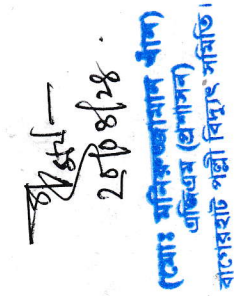 ২৮/০৪/২৪.
(মোঃ মনিরুজ্জামান খাঁন)
এজিএম (প্রশাসন)
বাগেরহাট পল্লী বিদ্যুৎ সমিতি।